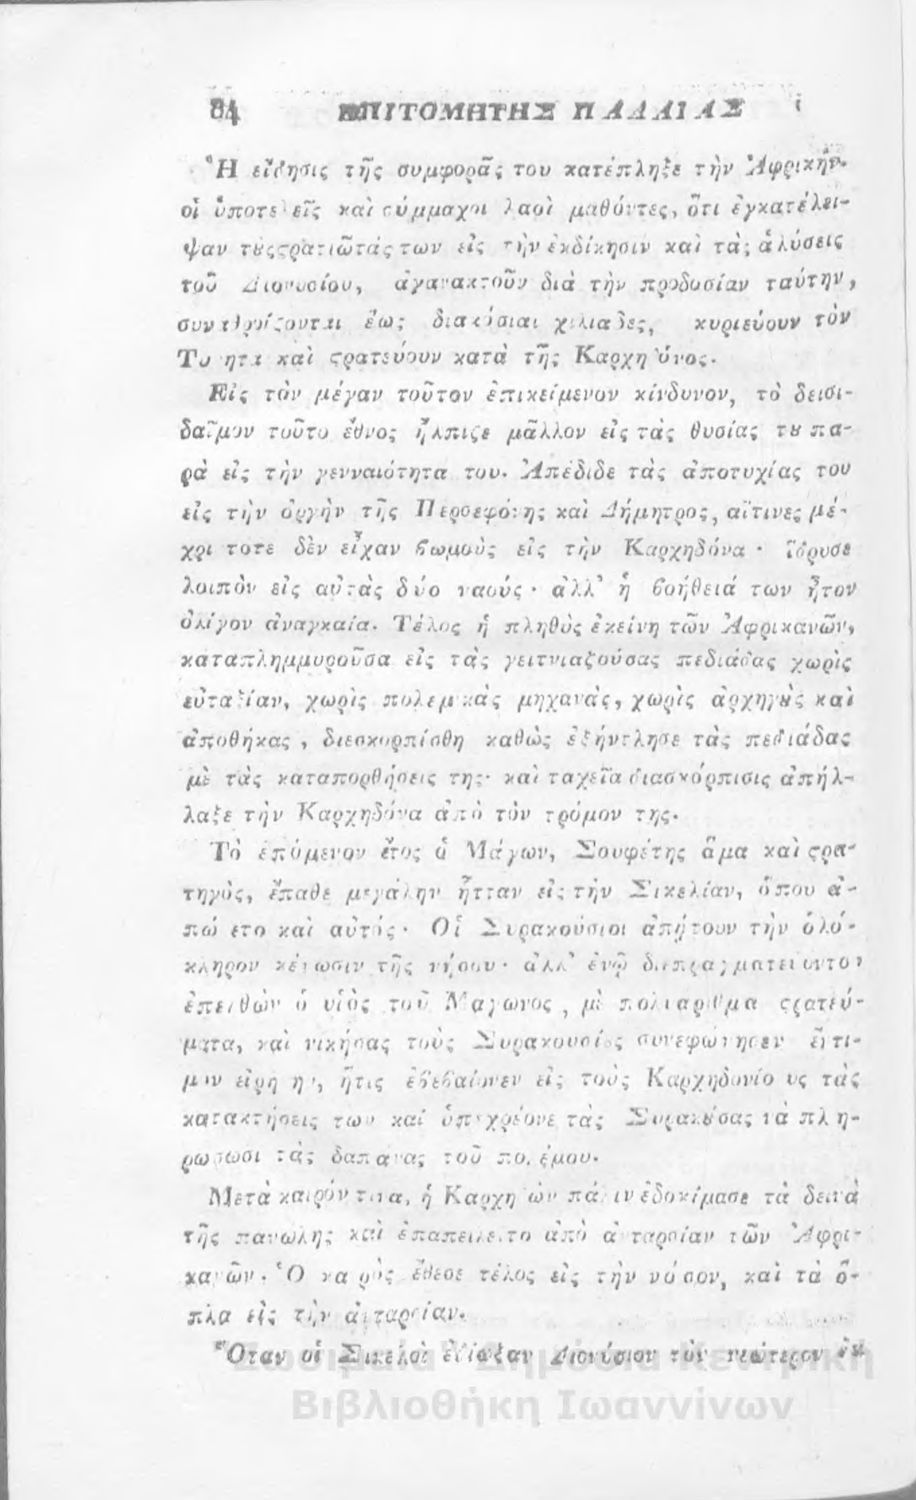 84 ΕΠΙΤΟΜΗ ΤΗΣ ΠΑΛΑΙΑΣ
Ἡ εἴδησις τῆς συμφορᾶς του κατέπληξε τὴν Ἀφρικήν.
οἱ ὑποτελεῖς καὶ σύμμαχοι λαοὶ μαθόντες, ὅτι ἐγκατέλει-
ψαν τȣςϛρατιῶτάς των εἰς τὴν ἐκδίκησιν καὶ τὰς ἁλύσεις
τοῦ Διονυσίου, ἀγανακτοῦν διὰ τὴν προδοσίαν ταύτην,
συναθροίζονται ἕως διακόσιαι χιλιάδες, κυριεύουν τὸν
Τύνητα καὶ ϛρατεύουν κατὰ τῆς Καρχηδόνος.
Εἰς τὸν μέγαν τοῦτον ἐπικείμενον κίνδυνον, τὸ δεισι-
δαῖμον τοῦτο ἔθνος ἤλπιζε μᾶλλον εἰς τὰς θυσίας τȣ πα-
ρὰ εἰς τὴν γενναιότητα του. Ἀπέδιδε τὰς ἀποτυχίας του
εἰς τὴν ὀργὴν τῆς Περσεφόνης καὶ Δήμητρος, αἵτινες μέ-
χρι τοτε δὲν εἶχαν βωμοὺς εἰς τὴν Καρχηδόνα · ἵδρυσε
λοιπὸν εἰς αὐτὰς δύο ναούς · ἀλλ' ἡ βοήθειά των ἦτον
ὀλίγον ἀναγκαία. Τέλος ἡ πληθὺς ἐκείνη τῶν Ἀφρικανῶν,
καταπλημμυροῦσα εἰς τὰς γειτνιαζούσας πεδιάδας χωρὶς
εὐταξίαν, χωρὶς πολεμικὰς μηχανάς, χωρὶς ἀρχηγȣ̀ς καὶ
ἀποθήκας , διεσκορπίσθη καθὼς ἐξήντλησε τὰς πεδιάδας
μὲ τὰς καταπορθήσεις της· καὶ ταχεῖα διασκόρπισις ἀπήλ-
λαξε τὴν Καρχηδόνα ἀπὸ τὸν τρόμον της.
Τὸ ἑπόμενον ἔτος ὁ Μάγων, Σουφέτης ἅμα καὶ ϛρα-
τηγὸς, ἔπαθε μεγάλην ἧτταν εἰς τὴν Σικελίαν, ὅπου ἀ-
πώλετο καὶ αὐτός · Οἱ Συρακούσιοι ἀπῄτουν τὴν ὁλό-
κληρον κένωσιν τῆς νήσου · ἀλλ' ἐνῷ διεπραγματεύοντο
ἐπελθὼν ὁ υἱὸς τοῦ Μάγωνος , μὲ πολυάριθμα ϛρατεύ-
ματα, καὶ νικήσας τοὺς Συρακουσίȣς συνεφώνησεν ἔντι-
μον εἰρήνην, ἥτις ἐβεβαίωνεν εἰς τοὺς Καρχηδονίους τὰς
κατακτήσεις των καὶ ὑπεχρέονε τὰς Συρακȣ́σας νὰ πλη-
ρώσωσι τὰς δαπάνας τοῦ πολέμου.
Μετὰ καιρόν τινα, ἡ Καρχηδὼν πάλιν ἐδοκίμασε τὰ δεινὰ
τῆς πανώλης καὶ ἐπαπειλεῖτο ἀπὸ ἀνταρσίαν τῶν Ἀφρι-
κανῶν · Ὁ καιρὸς ἔθεσε τέλος εἰς τὴν νόσον, καὶ τὰ ὅ-
πλα εἰς τὴν ἀνταρσίαν.
Ὅταν οἱ Σικελοὶ ἐδίωξαν Διονύσιον τὸν νεώτερον ἐκ
Ζωσιμαία Δημόσια Κεντρική
Βιβλιοθήκη Ιωαννίνων